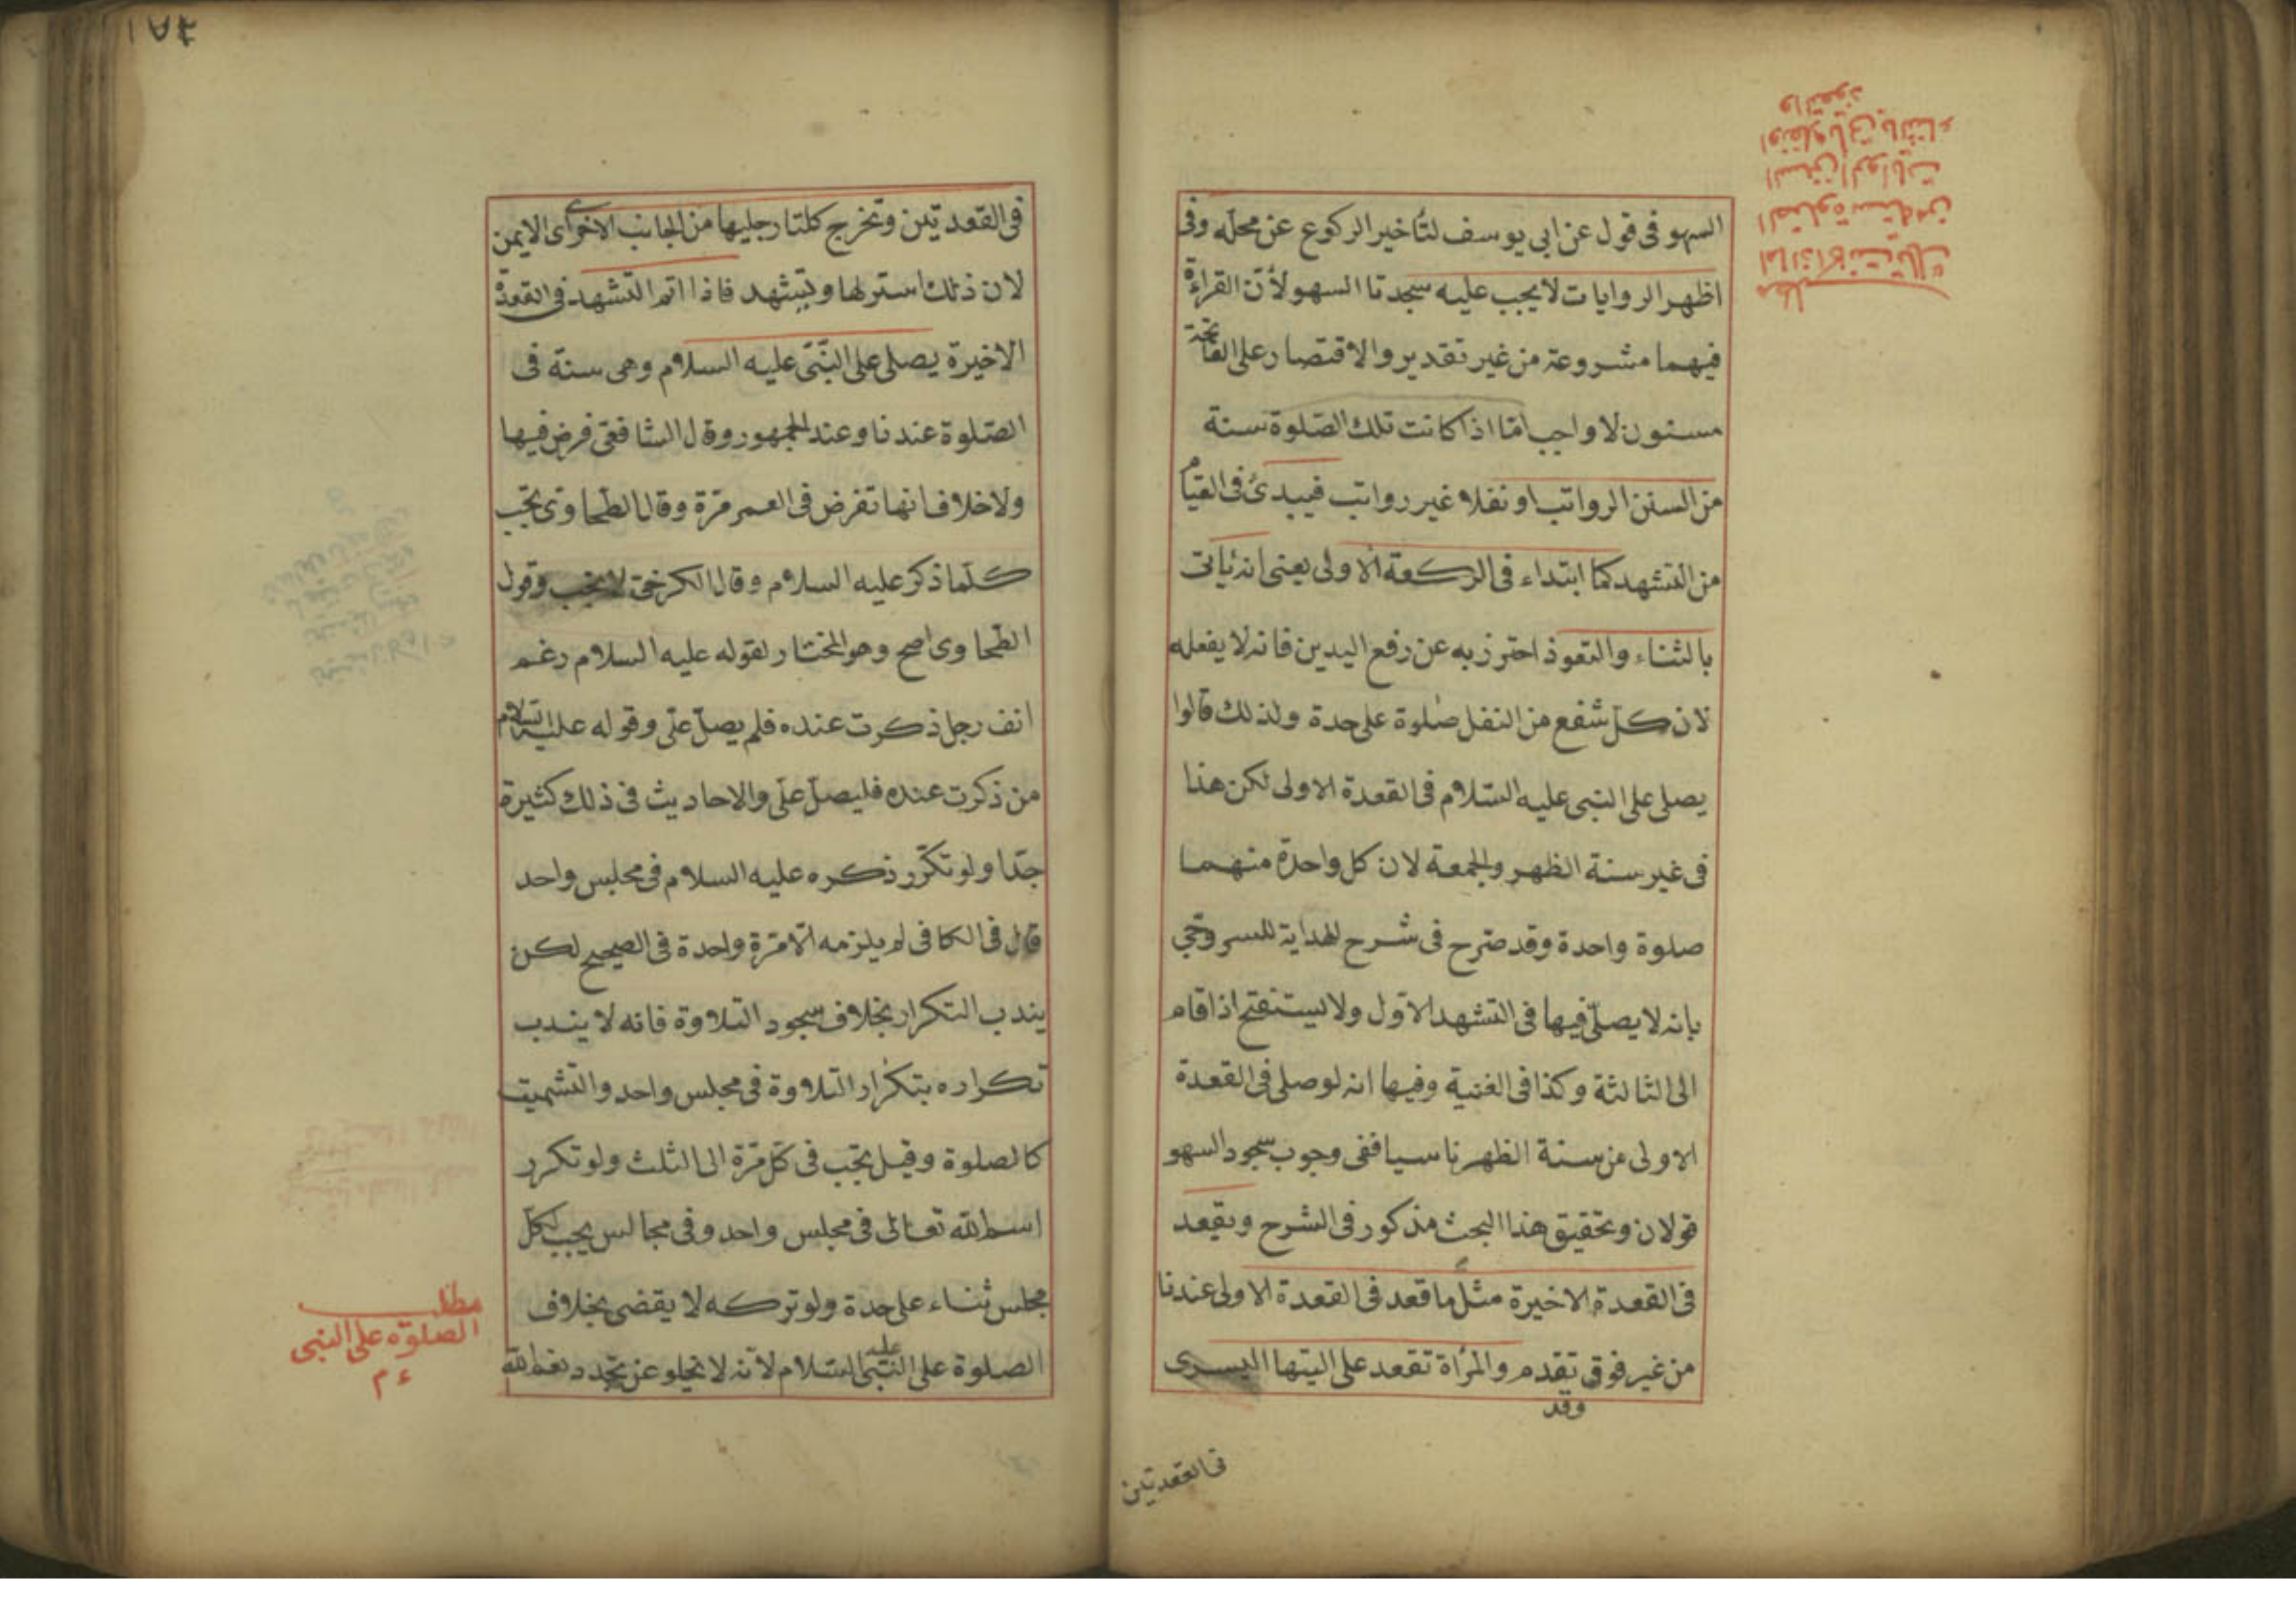 السهو فى قول عن ابى يوسف لتأخير الركوع عن محلّه وفى
اظهر الروايات لا يجب عليه سجدتا السهو لأنّ القراءة
فيهما مشروعة من غير تقدير والاقتصار على الفاتحة
مسنون لا واجب امّا اذا كانت تلك الصّلوة سنة
من السنن الرواتب او نفلا غير رواتب فيبدئ فى القيام
من التشهد كما ابتداء فى الركعة الاولى يعنى انه يأتى
بالثناء والتعوذ احترز به عن رفع اليدين فانه لا يفعله
لان كلّ شفع من النفل صلوة على حدة ولذلك قالوا
يصلى على النبى عليه السّلام فى القعدة الاولى لكن هذا
فى غير سنة الظهر والجمعة لان كل واحدة منهما
صلوة واحدة وقد صّرح فى شرح الهداية للسروجى
بانه لا يصلّى فيها فى التشهد الاوّل ولا يستفتح اذا قام
الى الثالثة وكذا فى الغنية وفيها انه لو صلى فى القعدة
الاولى من سنة الظهر ناسيا ففى وجوب سجود السهو
قولان وتحقيق هذا البحث مذكور فى الشرح ويقعد
فى القعدة الاخيرة مثل ما قعد فى القعدة الاولى عندنا
من غير فرق تقدم والمرأة تقعد على اليتها اليسرى
وقد
فى القعدتين
اما اذا كانت تلك
الصلوة سنة من
السنن الرواتب
او نفلا يأتى بالثناء
والتعوذ
فى القعدتين وتخرج كلتا رجليها من الجانب الاخرى اى الايمن
لان ذلك استر لها وتتشهد فاذا اتم التشهد فى القعدة
الاخيرة يصلى على النّبىّ عليه السلام وهى سنة فى
الصّلوة عندنا وعند الجمهور وقال الشافعى فرض فيها
ولا خلاف انها تفرض فى العمر مرّة وقال الطّحاوى تجب
كلّما ذكر عليه السلام وقال الكرخى لا يجب وقول
الطّحاوى اصح وهو المختار لقوله عليه السلام رغم
انف رجل ذكرت عنده فلم يصلّ علىّ وقوله عليه السلام
من ذكرت عنده فليصلّ علىّ والاحاديث فى ذلك كثيرة
جدّا ولو تكرّر ذكره عليه السلام فى مجلس واحد
قال فى الكافى لم يلزمه الّا مرّة واحدة فى الصحيح لكن
يندب التكرار بخلاف سجود التلاوة فانه لا يندب
تكراره بتكرار التلاوة فى مجلس واحد والتشميت
كالصلوة وقيل يجب فى كلّ مرّة الى الثلث ولو تكرر
اسم الله تعالى فى مجلس واحد وفى مجالس يجب لكلّ
مجلس ثناء على حدة ولو تركه لا يقضى بخلاف
الصلوة على النّبى عليه السّلام لأنه لا يخلو عن تجدد نعم الله
مطلب
الصلوة على النبى
ع م